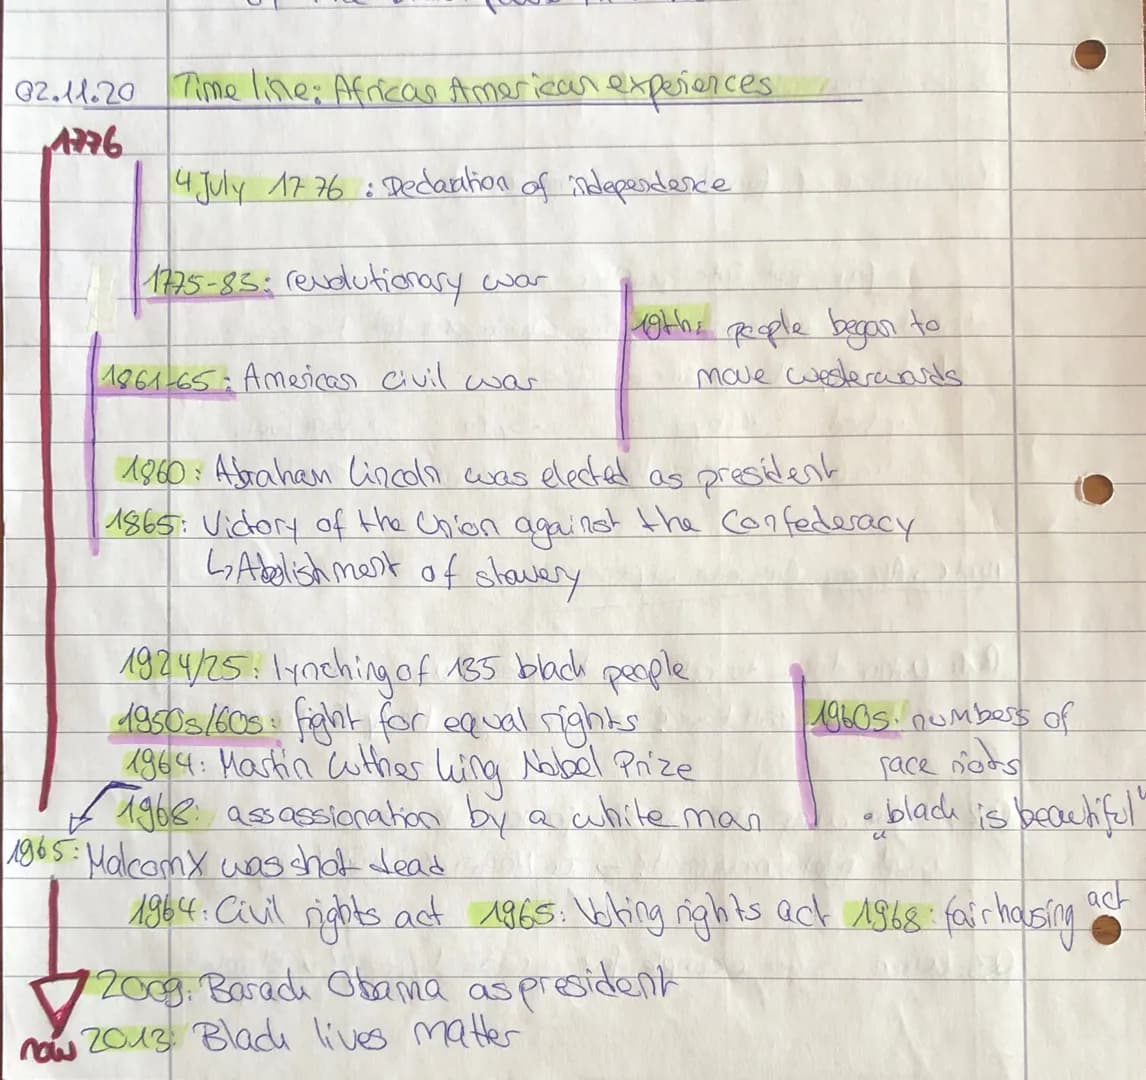 02.11.20 Time line: African American experiences
1776
4 July 1776: Declaration of independence
1775-83: revolutionary war
19th: people began to
move westerwards
1861-65: American civil war
1860: Abraham Lincoln was elected as president
1865: Victory of the Union against the Confederacy
↳ Abolishment of slavery
1924/25: lynching of 135 black people
1950s/60s: fight for equal rights
1960s: numbers of
race riots
1964: Martin Luther King Nobel Prize
1968: assassionation by a white man
• „black is beautiful“
1965: Malcom X was shot dead
1964: Civil rights act 1965: Voting rights act 1968: fair housing act
2009: Barack Obama as president
now 2013: Black lives matter